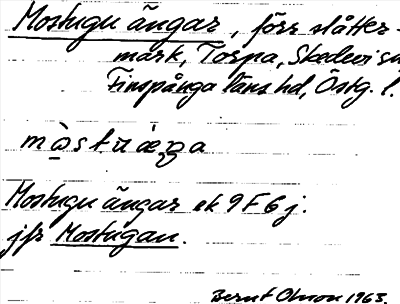 Mostugu ängar, förr slåtter-
mark, Torpa, Skedevi sn
Finspånga läns hd, Östg. l.
Mostugu ängar ek 9F6j.
jfr Mostugan.
Bernt Olsson 1963.